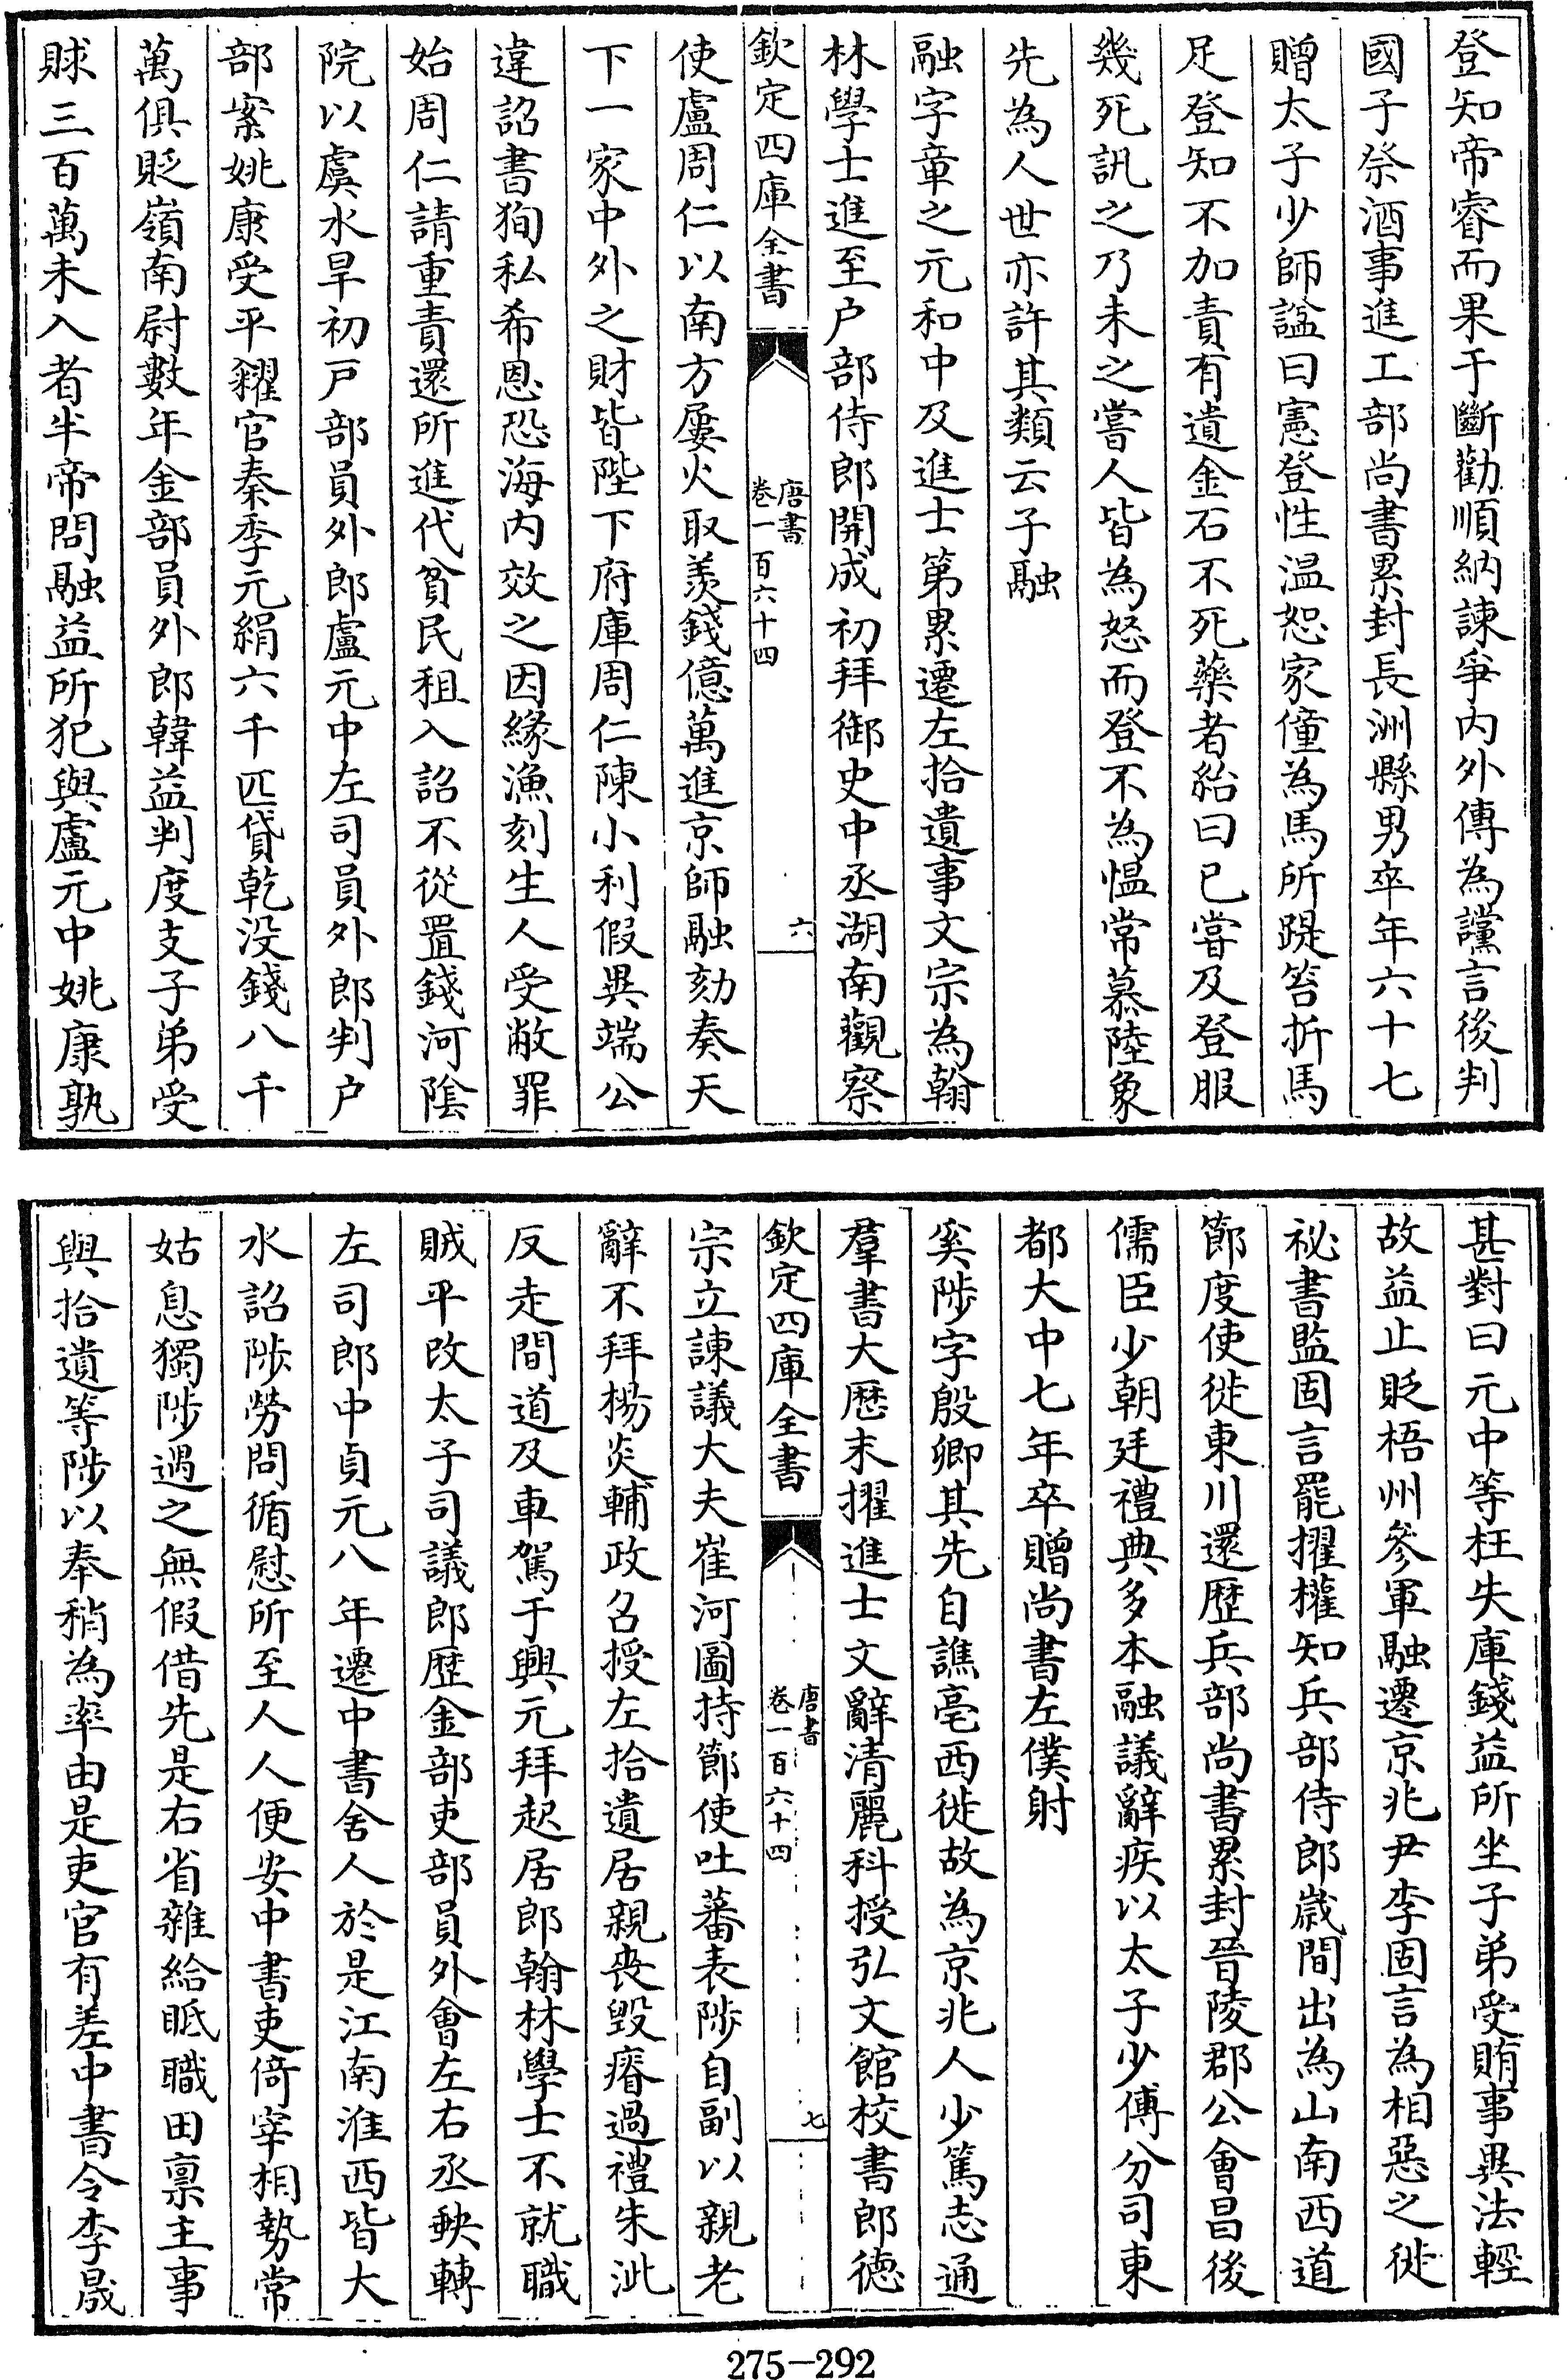 登知帝睿而果于斷勸順納諫爭内外傳為讜言後判
國子祭酒事進工部尚書累封長洲縣男卒年六十七
贈太子少師諡曰憲登性溫恕家僮為馬所踶笞折馬
足登知不加責有遺金石不死藥者紿曰已嘗及登服
幾死訊之乃未之嘗人皆為怒而登不為慍常慕陸象
先為人世亦許其類云子融
融字章之元和中及進士第累遷左拾遺事文宗為翰
林學士進至户部侍郎開成初拜御史中丞湖南觀察
欽定四庫全書
唐書
卷一百六十四
六
使盧周仁以南方屢火取羨錢億萬進京師融劾奏天
下一家中外之財皆陛下府庫周仁陳小利假異端公
違詔書狥私希恩恐海内效之因緣漁刻生人受敝罪
始周仁請重責還所進代貧民租入詔不從置錢河陰
院以虞水旱初戸部員外郎盧元中左司員外郎判户
部案姚康受平糴官秦季元絹六千匹貸乾没錢八千
萬俱貶嶺南尉數年金部員外郎韓益判度支子弟受
賕三百萬未入者半帝問融益所犯與盧元中姚康孰
甚對曰元中等枉失庫錢益所坐子弟受賄事異法輕
故益止貶梧州參軍融遷京兆尹李固言為相惡之徙
祕書監固言罷擢權知兵部侍郎歲間出為山南西道
節度使徙東川還歴兵部尚書累封晉陵郡公會昌後
儒臣少朝廷禮典多本融議辭疾以太子少傅分司東
都大中七年卒贈尚書左僕射
奚陟字殷卿其先自譙亳西徙故為京兆人少篤志通
羣書大歴末擢進士文辭清麗科授弘文館校書郎德
欽定四庫全書
唐書
卷一百六十四
七
宗立諫議大夫崔河圖持節使吐蕃表陟自副以親老
辭不拜楊炎輔政召授左拾遺居親喪毀瘠過禮朱泚
反走間道及車駕于興元拜起居郎翰林學士不就職
賊平改太子司議郎歴金部吏部員外會左右丞缺轉
左司郎中貞元八年遷中書舍人於是江南淮西皆大
水詔陟勞問循慰所至人人便安中書吏倚宰相勢常
姑息獨陟遇之無假借先是右省雜給眡職田禀主事
與拾遺等陟以奉稍為率由是吏官有差中書令李晟
275－292